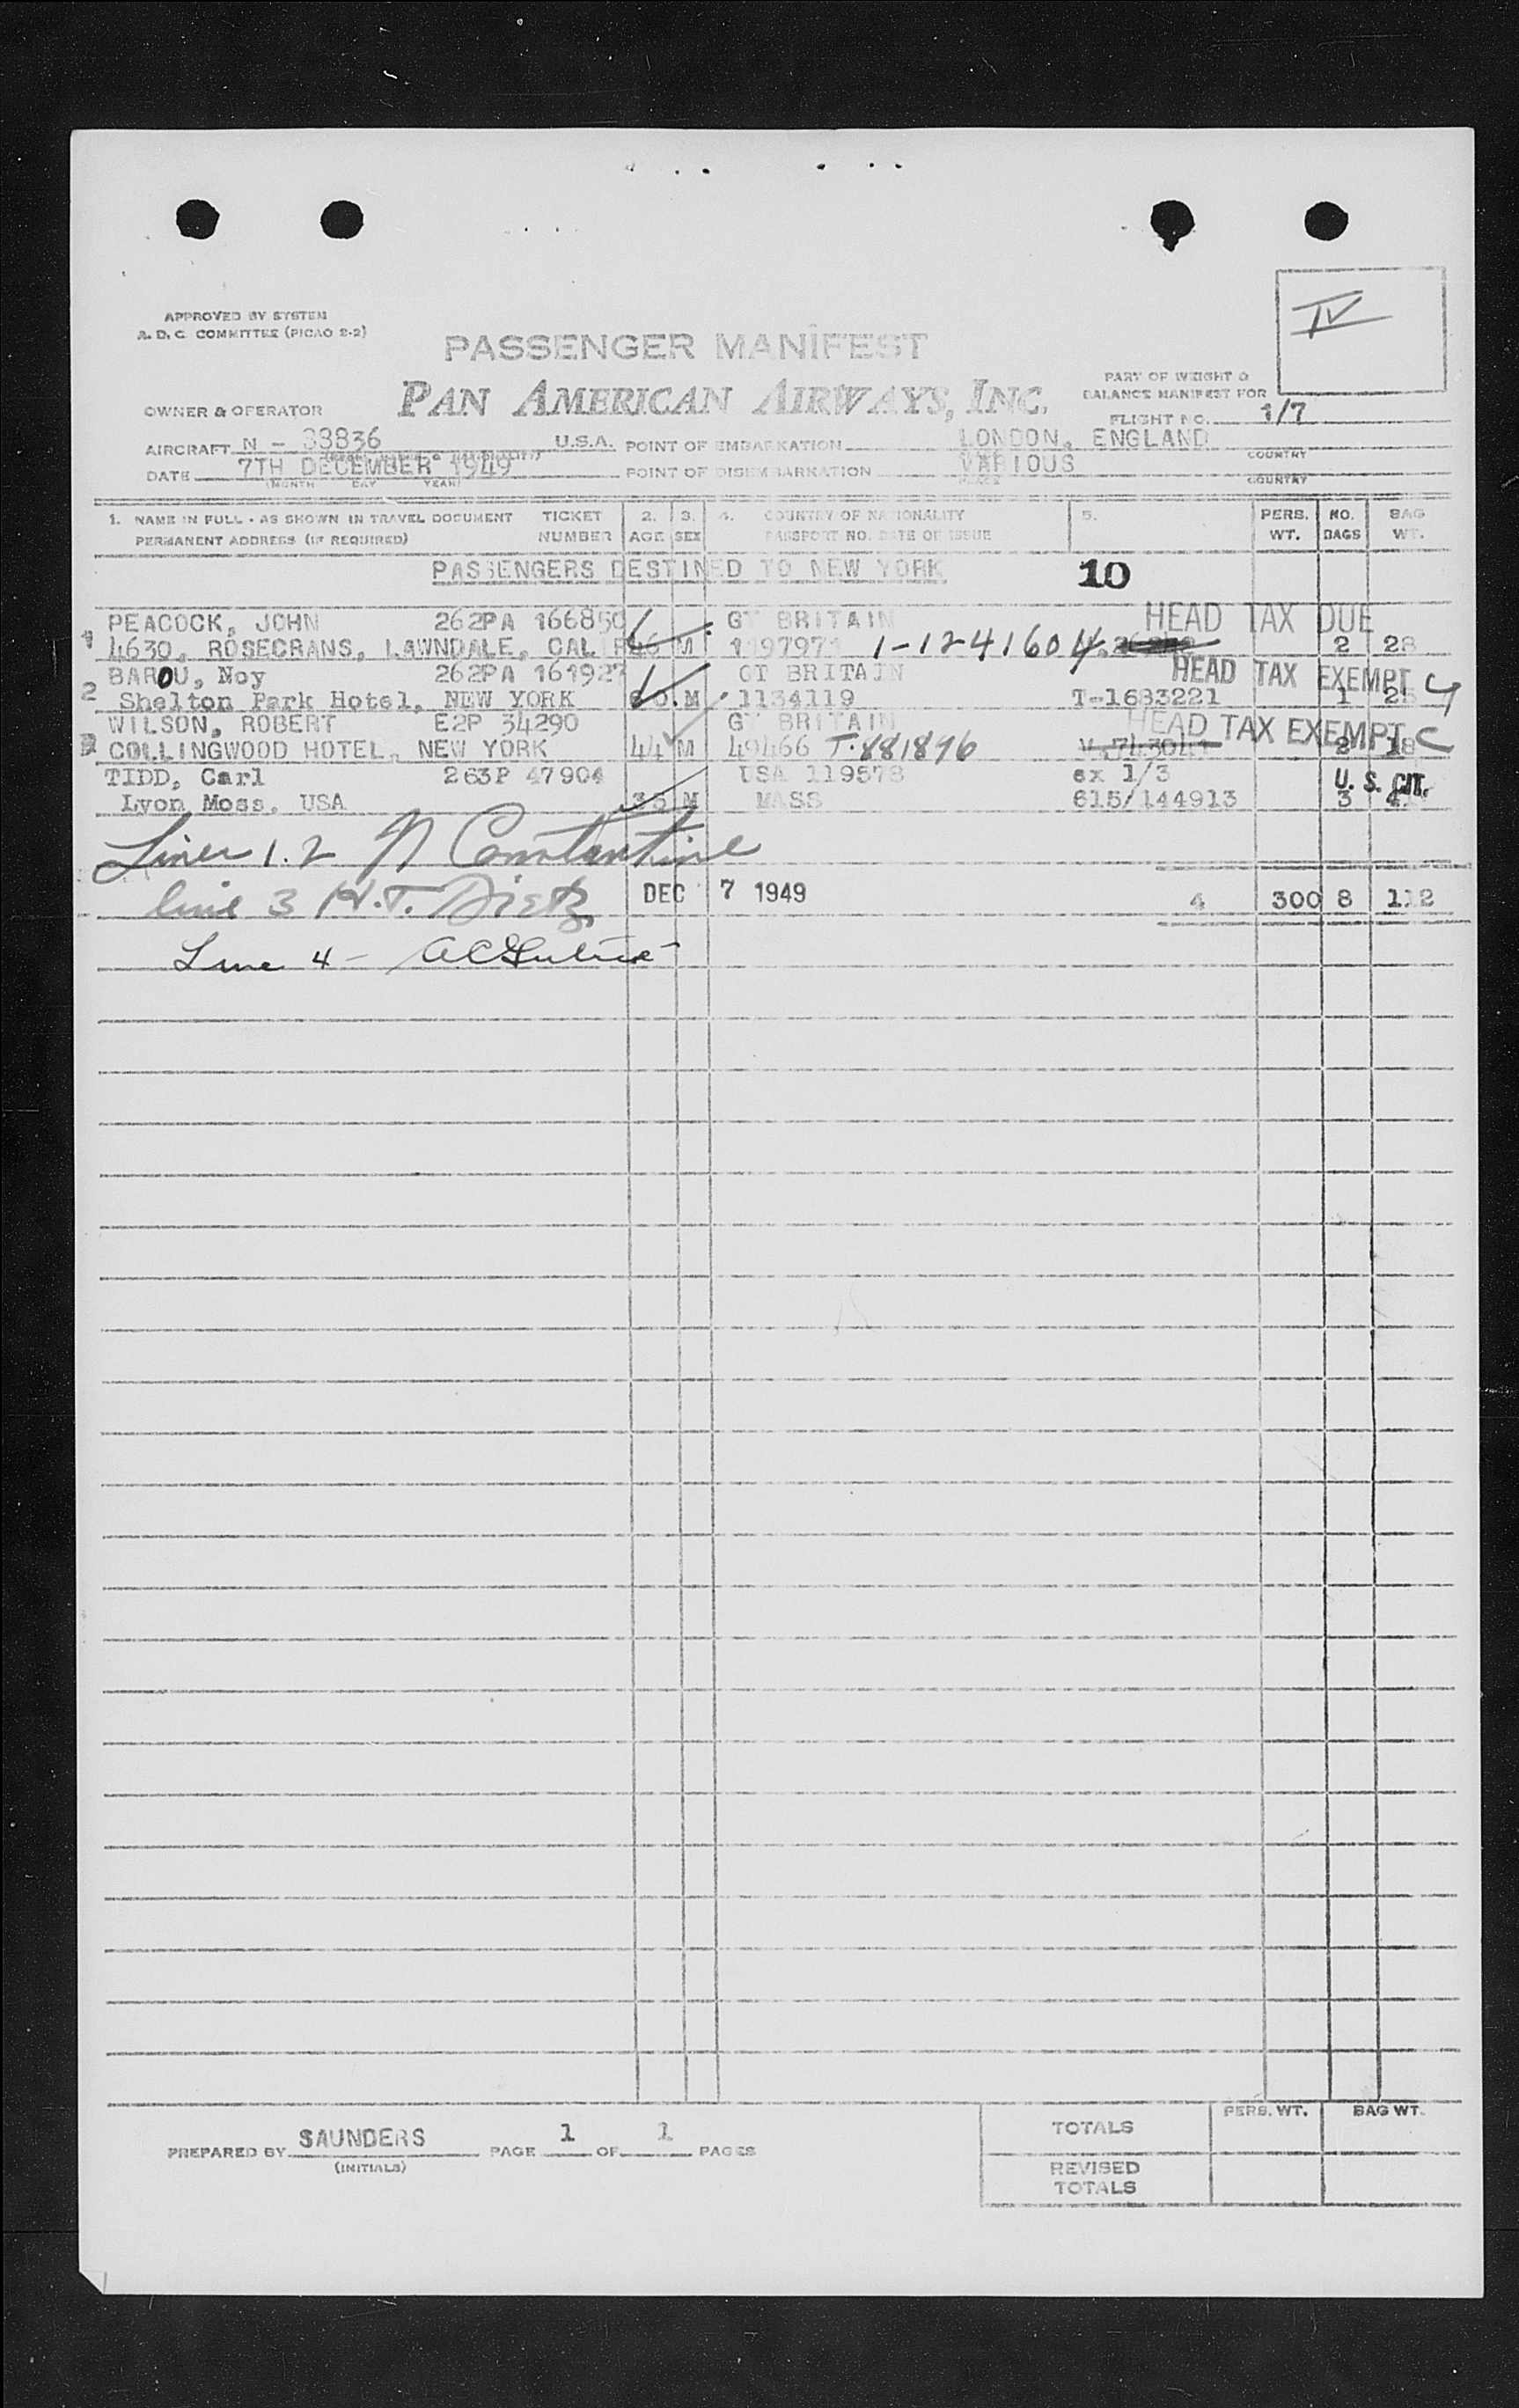 IV
APPROVED BY SYSTEM
A. D. C. COMMITTEE (PICAO 2-2)
PASSENGER MANIFEST
PAN AMERICAN AIRWAYS, INC.
PART OF WEIGHT &
BALANCE MANIFEST FOR
OWNER & OPERATOR
FLIGHT NO. 1/7
AIRCRAFT N - 88836 U.S.A. POINT OF EMBARKATION LONDON, ENGLAND
COUNTRY
DATE 7TH DECEMBER 1949 POINT OF DISEMBARKATION VARIOUS
(MONTH DAY YEAR) COUNTRY
1. NAME IN FULL - AS SHOWN IN TRAVEL DOCUMENT TICKET 2. 3. 4. COUNTRY OF NATIONALITY 5. PERS. NO. BAG
PERMANENT ADDRESS (IF REQUIRED) NUMBER AGE SEX PASSPORT NO. DATE OF ISSUE WT. BAGS WT.
PASSENGERS DESTINED TO NEW YORK 10
PEACOCK, JOHN 262PA 166850 GT BRITAIN HEAD TAX DUE
1 4630, ROSECRANS, LAWNDALE, CAL M 1-1241604 2 28
BAROU, Noy 262PA 161927 GT BRITAIN HEAD TAX EXEMPT
2 Shelton Park Hotel, NEW YORK 60 M 1134119 T-1683221 1 25
WILSON, ROBERT E2P 34290 GT BRITAIN HEAD TAX EXEMPT C
COLLINGWOOD HOTEL, NEW YORK 44 M 49466 T-881896 2 18
TIDD, Carl 263P 47904 USA 119578 ex 1/3 U. S. CIT.
Lyon Moss, USA 35 M MASS 615/144913 3 41
Lines 1.2 N Constantine
line 3 H.T. Dietz DEC 7 1949 4 300 8 112
Line 4 -
PREPARED BY SAUNDERS PAGE 1 OF 1 PAGES
(INITIALS)
PERS. WT. BAG WT.
TOTALS
REVISED
TOTALS